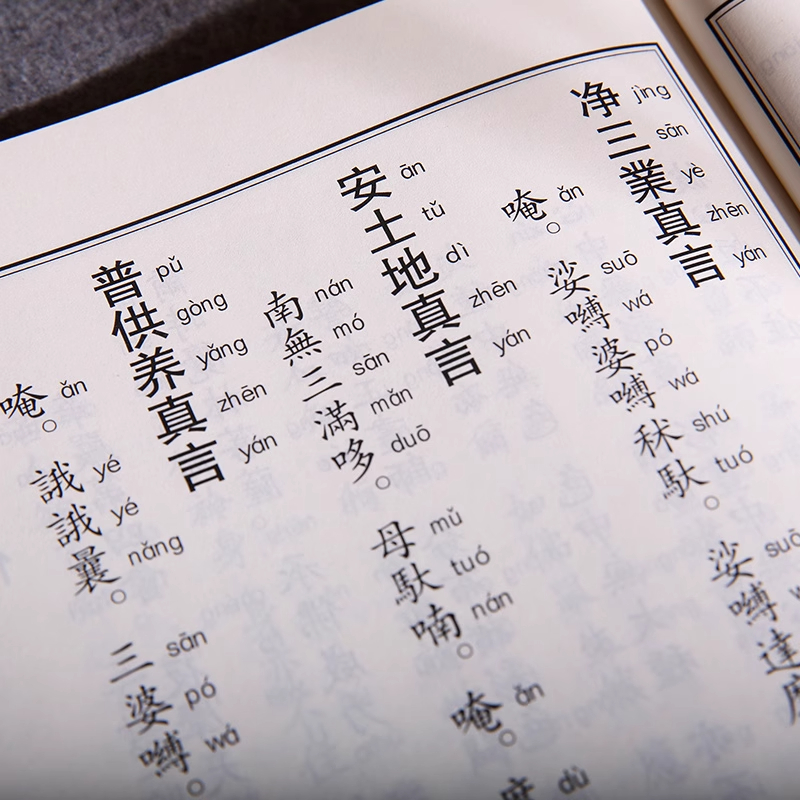 净三業真言
jìng sān yè zhēn yán
唵。娑嚩婆嚩秫馱。娑嚩達
ǎn suō wá pó wá shú tuó suō
安土地真言
ān tǔ dì zhēn yán
南無三滿哆。母馱喃。唵。度
nán mó sān mǎn duō mǔ tuó nán ǎn dù
普供养真言
pǔ gòng yǎng zhēn yán
唵。誐誐曩。三婆嚩。
ǎn yé yé nǎng sān pó wá